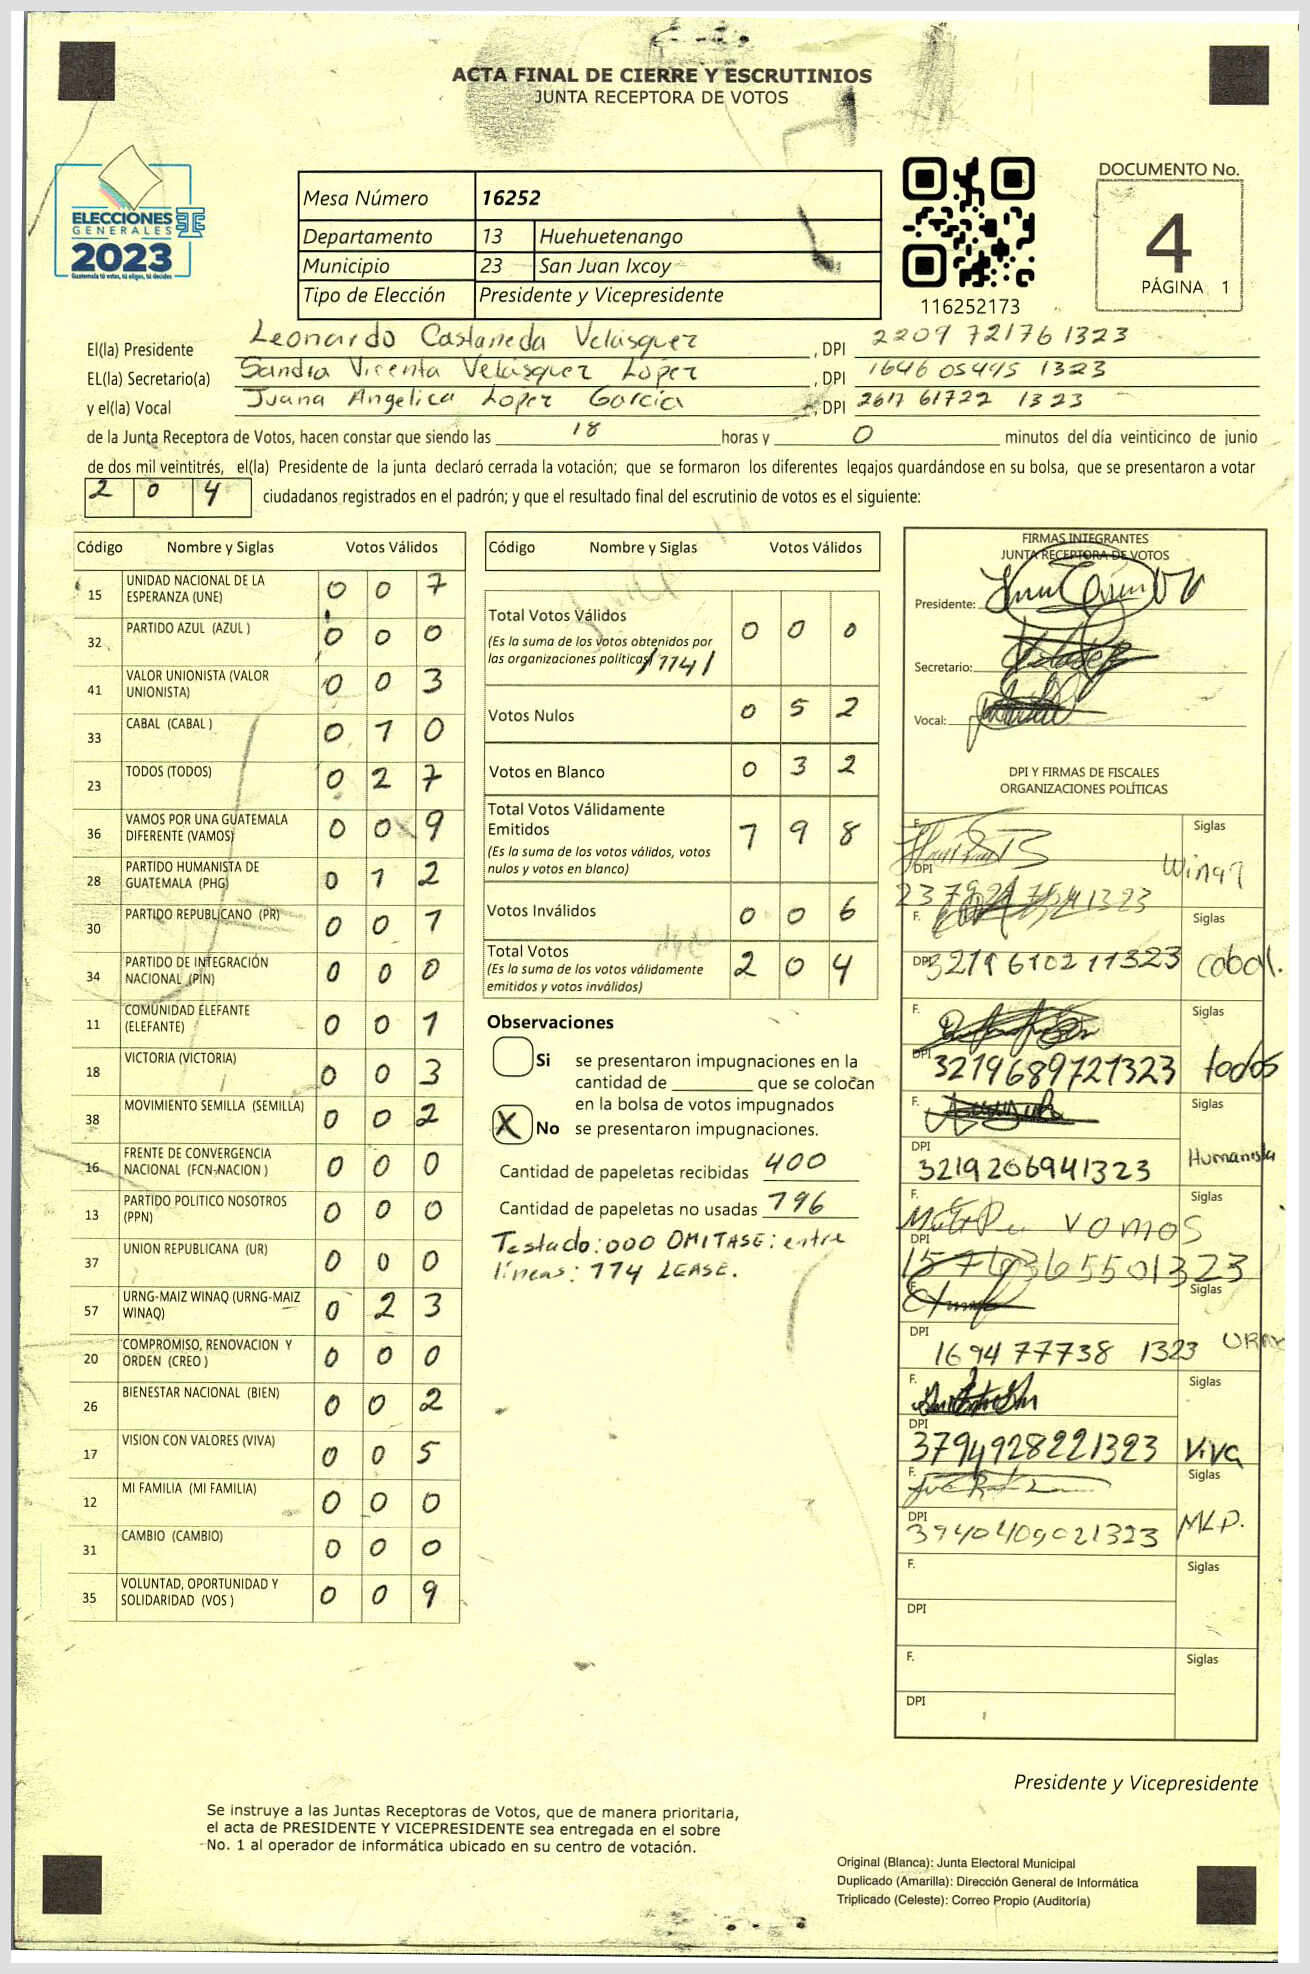 ACTA FINAL DE CIERRE Y ESCRUTINIOS
JUNTA RECEPTORA DE VOTOS
ELECCIONES
GENERALES
2023
Guatemala tú votas, tú eliges, tú decides
Mesa Número 16252
Departamento 13 Huehuetenango
Municipio 23 San Juan Ixcoy
Tipo de Elección Presidente y Vicepresidente
116252173
DOCUMENTO No.
4
PÁGINA 1
El(la) Presidente Leonardo Castañeda Velásquez , DPI 2209 72176 1323
EL(la) Secretario(a) Sandra Vicenta Velásquez López , DPI 1646 05495 1323
y el(la) Vocal Juana Angelica Lopez García , DPI 2617 61722 1323
de la Junta Receptora de Votos, hacen constar que siendo las 18 horas y 0 minutos del día veinticinco de junio
de dos mil veintitrés, el(la) Presidente de la junta declaró cerrada la votación; que se formaron los diferentes legajos guardándose en su bolsa, que se presentaron a votar
204 ciudadanos registrados en el padrón; y que el resultado final del escrutinio de votos es el siguiente:
Código Nombre y Siglas Votos Válidos
15 UNIDAD NACIONAL DE LA ESPERANZA (UNE) 0 0 7
32 PARTIDO AZUL (AZUL ) 0 0 0
41 VALOR UNIONISTA (VALOR UNIONISTA) 0 0 3
33 CABAL (CABAL ) 0 1 0
23 TODOS (TODOS) 0 2 7
36 VAMOS POR UNA GUATEMALA DIFERENTE (VAMOS) 0 0 9
28 PARTIDO HUMANISTA DE GUATEMALA (PHG) 0 1 2
30 PARTIDO REPUBLICANO (PR) 0 0 1
34 PARTIDO DE INTEGRACIÓN NACIONAL (PIN) 0 0 0
11 COMUNIDAD ELEFANTE (ELEFANTE) 0 0 1
18 VICTORIA (VICTORIA) 0 0 3
38 MOVIMIENTO SEMILLA (SEMILLA) 0 0 2
16 FRENTE DE CONVERGENCIA NACIONAL (FCN-NACION ) 0 0 0
13 PARTIDO POLITICO NOSOTROS (PPN) 0 0 0
37 UNION REPUBLICANA (UR) 0 0 0
57 URNG-MAIZ WINAQ (URNG-MAIZ WINAQ) 0 2 3
20 COMPROMISO, RENOVACION Y ORDEN (CREO ) 0 0 0
26 BIENESTAR NACIONAL (BIEN) 0 0 2
17 VISION CON VALORES (VIVA) 0 0 5
12 MI FAMILIA (MI FAMILIA) 0 0 0
31 CAMBIO (CAMBIO) 0 0 0
35 VOLUNTAD, OPORTUNIDAD Y SOLIDARIDAD (VOS ) 0 0 9
Código Nombre y Siglas Votos Válidos
Total Votos Válidos 0 0 0
(Es la suma de los votos obtenidos por
las organizaciones políticas) /114/
Votos Nulos 0 5 2
Votos en Blanco 0 3 2
Total Votos Válidamente
Emitidos 1 9 8
(Es la suma de los votos válidos, votos
nulos y votos en blanco)
Votos Inválidos 0 0 6
Total Votos 2 0 4
(Es la suma de los votos válidamente
emitidos y votos inválidos)
Observaciones
Si se presentaron impugnaciones en la
cantidad de ________ que se colocan
en la bolsa de votos impugnados
X No se presentaron impugnaciones.
Cantidad de papeletas recibidas 400
Cantidad de papeletas no usadas 196
Testado: 000 OMITASE: entre
líneas: 114 LEASE.
FIRMAS INTEGRANTES
JUNTA RECEPTORA DE VOTOS
Presidente:
Secretario:
Vocal:
DPI Y FIRMAS DE FISCALES
ORGANIZACIONES POLÍTICAS
F. Siglas
DPI Winaq
F. Siglas
DPI 3219610211323 cabal.
F. Siglas
DPI 3219689721323 todos
F. Siglas
DPI 3219206941323 Humanista
F. Siglas
VAMOS
DPI 1576365501323
F. Siglas
DPI 1694 77738 1323
F. Siglas
DPI 3794928221323 Viva
F. Siglas
DPI 3940409021323 MLP.
F. Siglas
DPI
F. Siglas
DPI
Presidente y Vicepresidente
Se instruye a las Juntas Receptoras de Votos, que de manera prioritaria,
el acta de PRESIDENTE Y VICEPRESIDENTE sea entregada en el sobre
No. 1 al operador de informática ubicado en su centro de votación.
Original (Blanca): Junta Electoral Municipal
Duplicado (Amarilla): Dirección General de Informática
Triplicado (Celeste): Correo Propio (Auditoría)